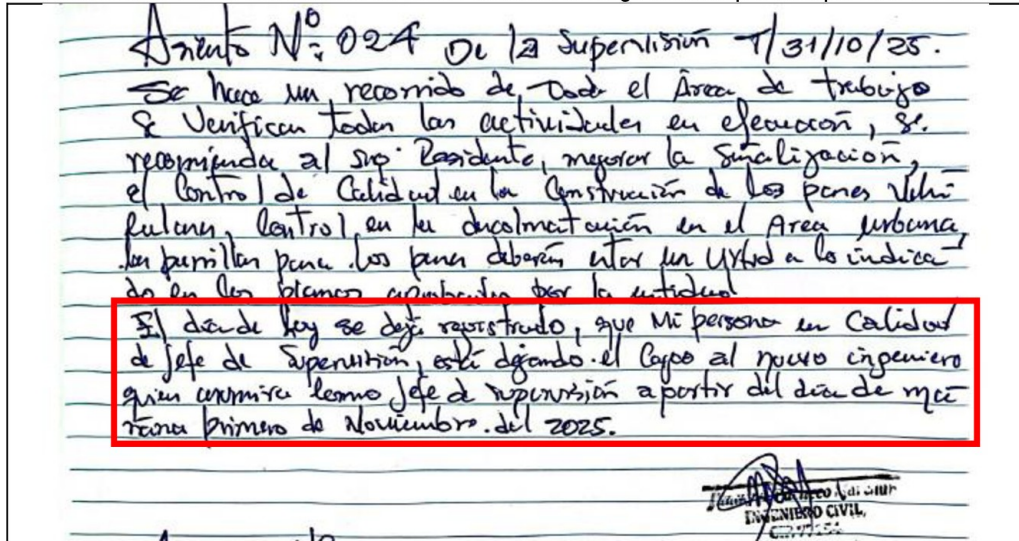 Asiento N°: 024 De la Supervisión T/31/10/25.
Se hace un recorrido de todo el Área de trabajo
Se Verifican todas las actividades en ejecución, se.
recomienda al Ing° Residente, mejorar la Señalización,
el Control de Calidad en la Construcción de los pases Vehi
culares, Control en la descolmatación en el Area urbana,
las parrillas para los pases deberán estar en Virtud a lo indica
do en los planos aprobados por la entidad.
El día de hoy se deja registrado, que Mi persona en Calidad
de jefe de Supervisión, está dejando el Cargo al nuevo ingeniero
quien asumira como Jefe de supervisión a partir del día de ma
ñana primero de Noviembre del 2025.
INGENIERO CIVIL